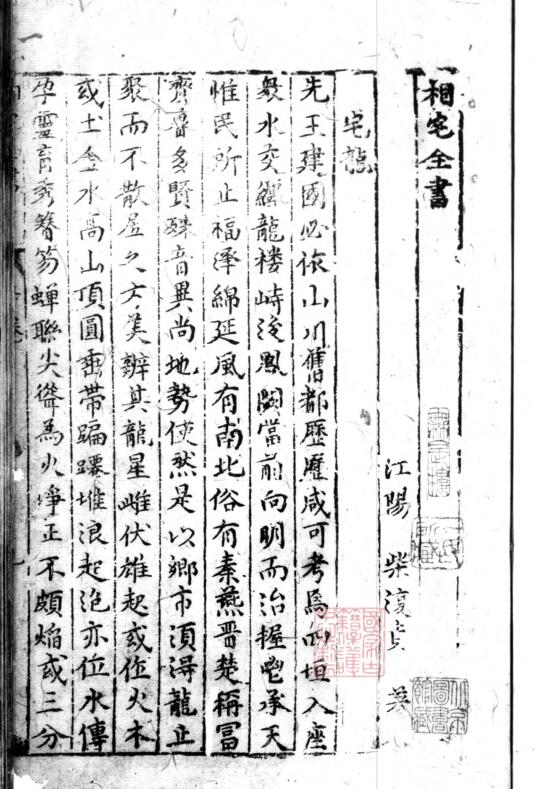 相宅全書
江陽 柴復貞
宅龍
先王建國必依山川舊都歷歷咸可考焉四垣入座
衆水交纏龍楼峙後鳳闕當前向明而治握乾承天
惟民所止福澤綿延風有南北俗有秦燕晉楚稱冨
齊魯多賢殊音異尚地勢使然是以鄉市須淂龍止
聚而不散居之方美辨其龍星雌伏雄起或位火木
或土金水高山頂圓垂帶蹁躚堆浪起泡亦位水傳
孕靈育秀簪笏蟬聯尖聳為火净正不頗焰或三分